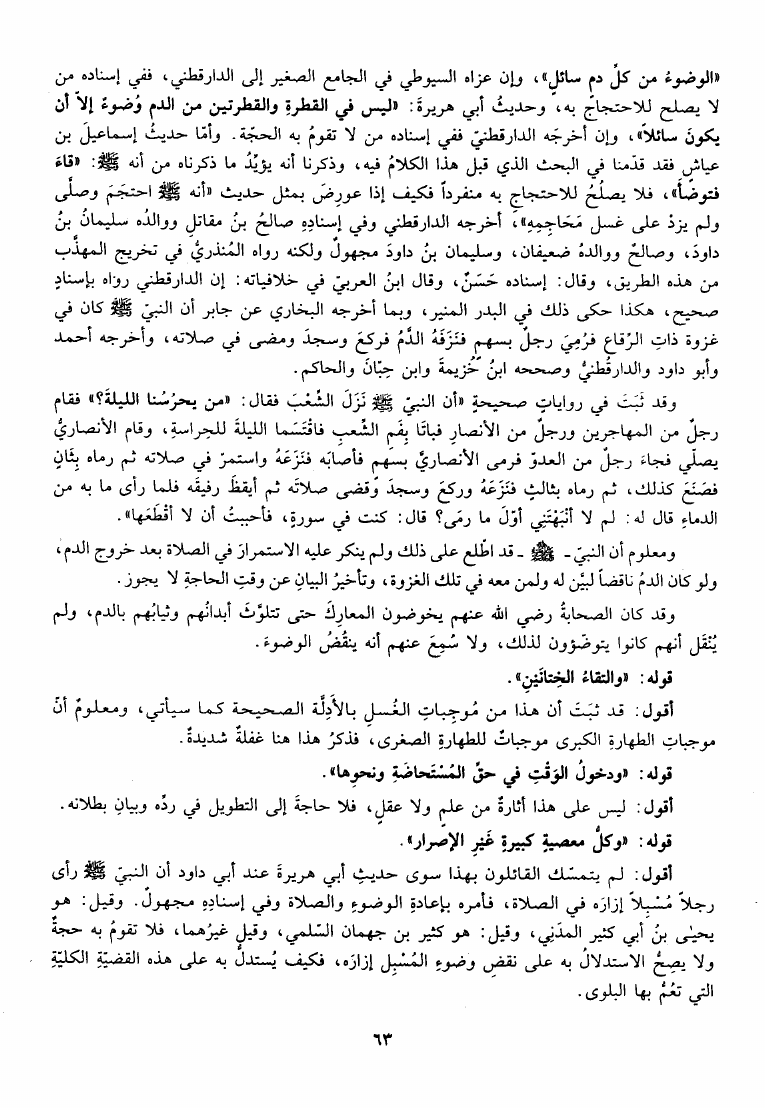 «الوضوءُ من كلِّ دم سائلٍ»، وإن عزاه السيوطي في الجامع الصغير إلى الدارقطني، ففي إسناده من
لا يصلح للاحتجاج به، وحديثُ أبي هريرةَ: «ليس في القطرةِ والقطرتين من الدم وُضوءً إلاّ أن
يكونَ سائلاً»، وإن أخرجَه الدارقطنيّ ففي إسناده من لا تقومُ به الحجّة. وأمّا حديثُ إسماعيلَ بن
عياشٍ فقد قدّمنا في البحث الذي قبل هذا الكلامُ فيه، وذكرنا أنه يؤيِّدُ ما ذكرناه من أنه ﷺ: «قاءَ
فتوضّأ»، فلا يصلُحُ للاحتجاجِ به منفرداً فكيف إذا عورِضَ بمثل حديث «أنه ﷺ احتجَمَ وصلَّى
ولم يزدْ على غسل مَحَاجِمِهِ»، أخرجه الدارقطني وفي إسنادِهِ صالحُ بنُ مقاتلٍ ووالدُه سليمانُ بنُ
داودَ، وصالحٌ ووالدهُ ضعيفان، وسليمان بنُ داودَ مجهولٌ ولكنه رواه المُنذريُّ في تخريج المهذَّب
من هذه الطريق، وقال: إسناده حَسَنٌ، وقال ابنُ العربيّ في خلافياته: إن الدارقطني رواه بإسنادٍ
صحيح، هكذا حكى ذلك في البدر المنير، وبما أخرجه البخاري عن جابر أن النبيّ ﷺ كان في
غزوة ذاتِ الرِّقاع فرُمِيَ رجلٌ بسهم فنَزَفَهُ الدَّمُ فركعَ وسجدَ ومضى في صلاته، وأخرجه أحمد
وأبو داود والدارقُطنيُّ وصححه ابنُ خُزيمةَ وابن حِبَّانَ والحاكم.
وقد ثبَتَ في رواياتٍ صحيحةٍ «أن النبيّ ﷺ نَزَلَ الشِّعْبَ فقال: «من يحرُسُنا الليلةَ؟» فقام
رجلٌ من المهاجرين ورجلٌ من الأنصارِ فباتَا بِفَمِ الشِّعبِ فاقْتَسَما الليلةَ للحِراسةِ، وقام الأنصاريُّ
يصلّي فجاءَ رجلٌ من العدوّ فرمى الأنصاريَّ بسهم فأصابَه فنَزَعَهُ واستمرّ في صلاته ثم رماه بِثَانٍ
فصَنَعَ كذلك، ثم رماه بثالثٍ فنَزَعَهُ وركعَ وسجدَ وقضى صلاتَه ثم أيقظَ رفيقَه فلما رأى ما به من
الدماءِ قال له: لم لا أَنْبَهْتَنِي أوّلَ ما رمَى؟ قال: كنت في سورةٍ، فأحببتُ أن لا أقْطَعَها».
ومعلوم أن النبيّ - ﷺ - قد اطّلع على ذلك ولم ينكر عليه الاستمرارَ في الصلاة بعد خروج الدم،
ولو كان الدمُ ناقضاً لبيَّن له ولمن معه في تلك الغزوة، وتأخيرُ البيانِ عن وقتِ الحاجةِ لا يجوز.
وقد كان الصحابةُ رضي الله عنهم يخوضون المعارِكَ حتى تتلوَّثَ أبدانُهم وثيابُهم بالدم، ولم
يُنْقَل أنهم كانوا يتوضّؤون لذلك، ولا سُمِعَ عنهم أنه ينقُضُ الوضوءَ.
قوله: «والتقاءُ الخِتانَيْنِ».
أقول: قد ثبَتَ أن هذا من مُوجِباتِ الغُسلِ بالأَدِلَّة الصحيحة كما سيأتي، ومعلومٌ أنّ
موجباتِ الطهارةِ الكبرى موجباتٌ للطهارةِ الصغرى، فذكرُ هذا هنا غفلةٌ شديدةٌ.
قوله: «ودخولُ الوَقْتِ في حقِّ المُسْتَحاضَةِ ونحوِها».
أقول: ليس على هذا أثارةٌ من علمٍ ولا عقلٍ، فلا حاجةَ إلى التطويل في ردِّه وبيانِ بطلانه.
قوله: «وكلُّ معصيةٍ كبيرةٍ غَيْرِ الإصرار».
أقول: لم يتمسّك القائلون بهذا سوى حديثِ أبي هريرةَ عند أبي داود أن النبيّ ﷺ رأى
رجلاً مُسْبِلاً إزارَه في الصلاة، فأمره بإعادةِ الوضوءِ والصلاة وفي إسنادِهِ مجهولٌ. وقيل: هو
يحيٰى بنُ أبي كثير المدَنِي، وقيل: هو كثير بن جهمان السّلمي، وقيل غيرُهما، فلا تقومُ به حجةٌ
ولا يصِحُّ الاستدلالُ به على نقضِ وضوءِ المُسْبِلِ إزارَه، فكيف يُستدلُّ به على هذه القضيّةِ الكليّةِ
التي تعُمُّ بها البلوى.
٦٣